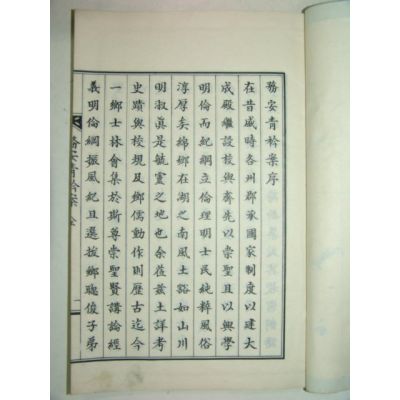 務安青衿案序
在昔盛時各州郡承國家制度以建大
成殿繼設校興齊先以崇聖且以興學
明倫而紀綱立倫理明士民純粹風俗
淳厚矣綿鄉在湖之南風土谿如山川
明淑眞是毓靈之地也余莅茲土詳考
史蹟與校規及鄉儒動作則歷古迄今
一鄉士林會集於斯尊崇聖賢講論經
義明倫綱振風紀且選拔鄉聰俊子弟
務安青衿案 全
一